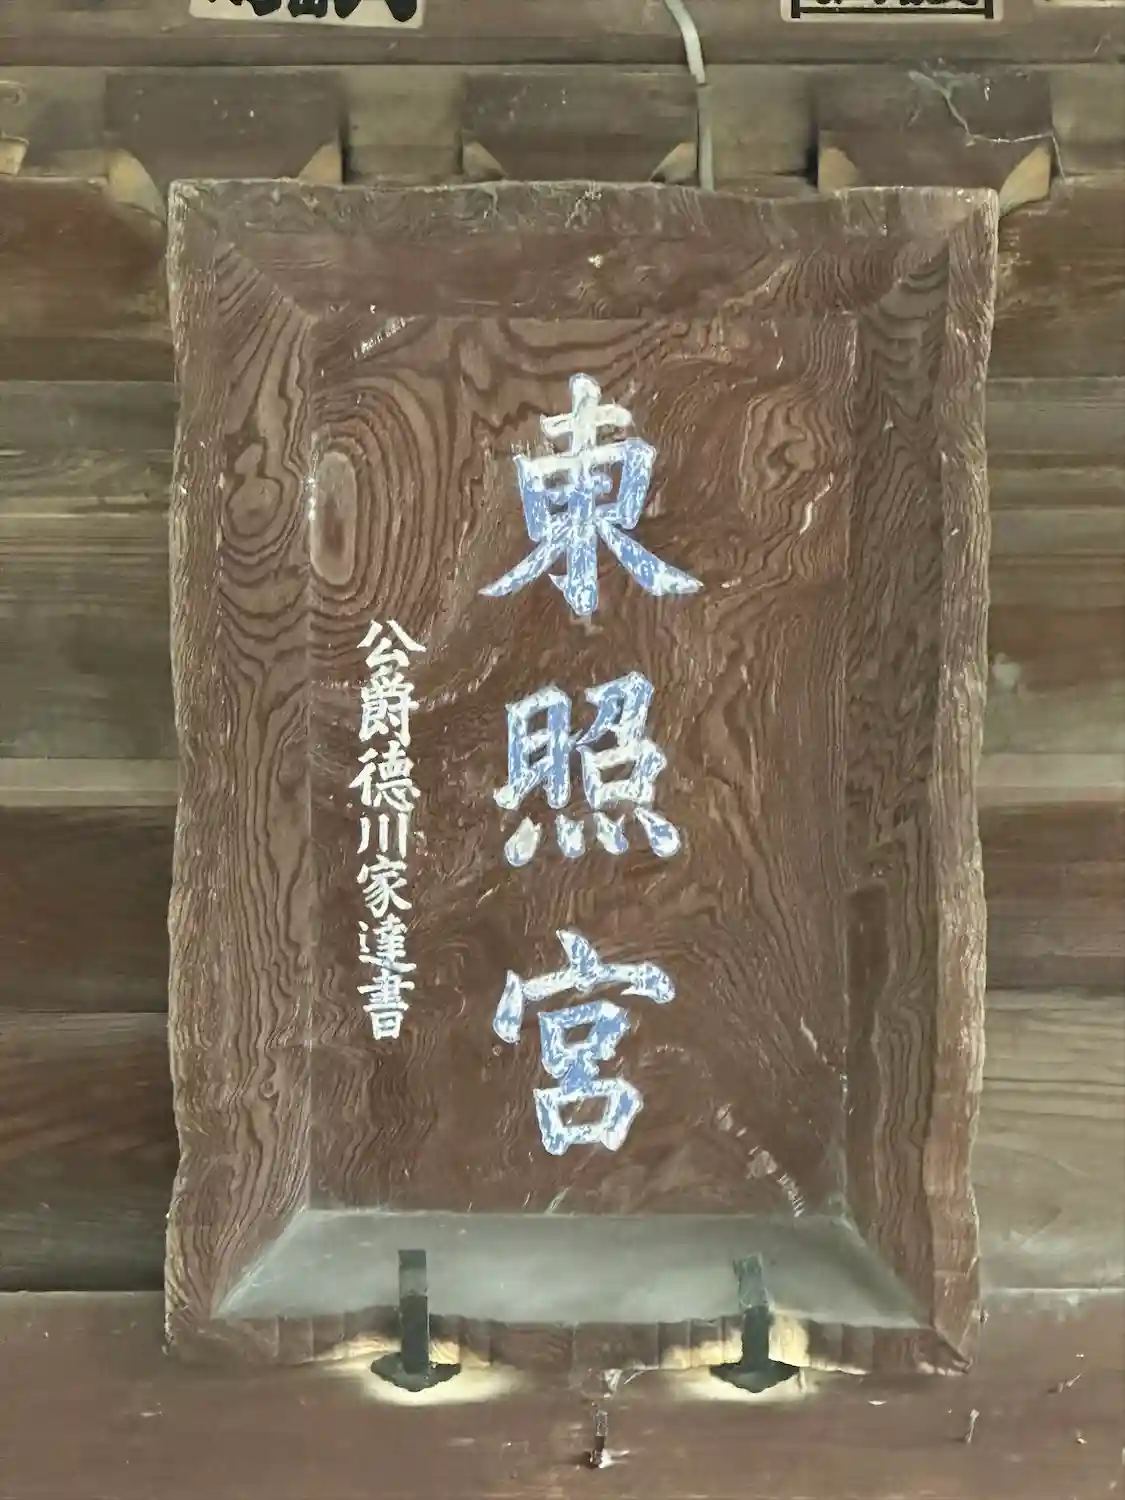 東照宮
公爵德川家達書